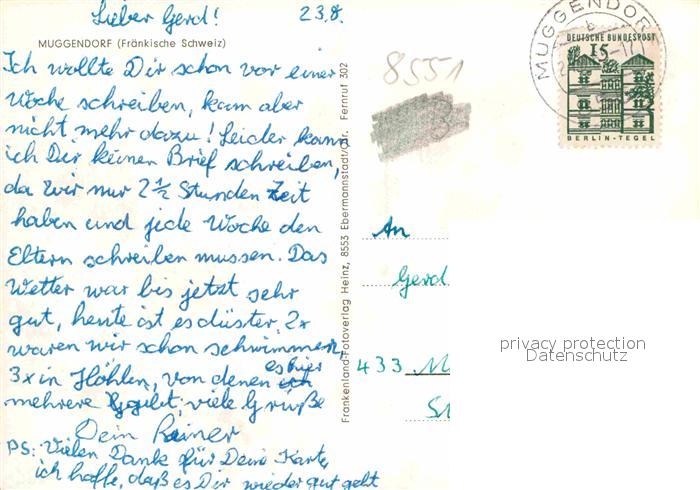 Lieber Gerd! 23.8.
MUGGENDORF (Fränkische Schweiz)
Ich wollte Dir schon vor einer
Woche schreiben, kam aber
nicht mehr dazu! Leider kann
ich Dir keinen Brief schreiben,
da wir nur 2½ Stunden Zeit
haben und jede Woche den
Eltern schreiben mussen. Das
Wetter war bis jetzt sehr
gut, heute ist es düster. 2x
waren wir schon schwimmen,
3x in Höhlen, von denen es hier
mehrere gibt, viele Grüße
Dein Rainer
PS: Vielen Dank für Deine Karte,
ich hoffe, daß es Dir wieder gut geht
Frankenland-Fotoverlag Heinz, 8553 Ebermannstadt/Ofr. Fernruf 302
8551
3
MUGGENDORF
DEUTSCHE BUNDESPOST
15
BERLIN-TEGEL
An
Gerd
433 M
privacy protection
Datenschutz